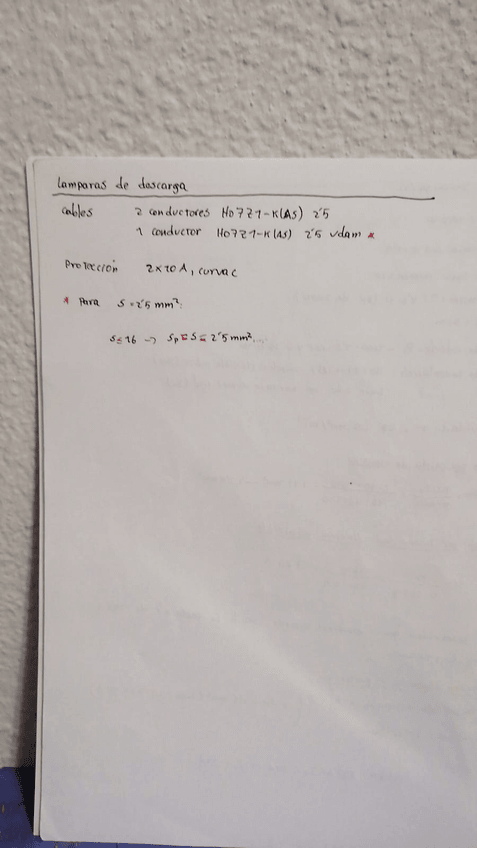 Lamparas de descarga
cables 2 conductores H07Z1-K(AS) 2'5
1 conductor H07Z1-K(AS) 2'5 vdam *
Protección 2x10A, curva C
* Para S=2'5 mm².
S≤16 → Sp=S= 2'5mm²...